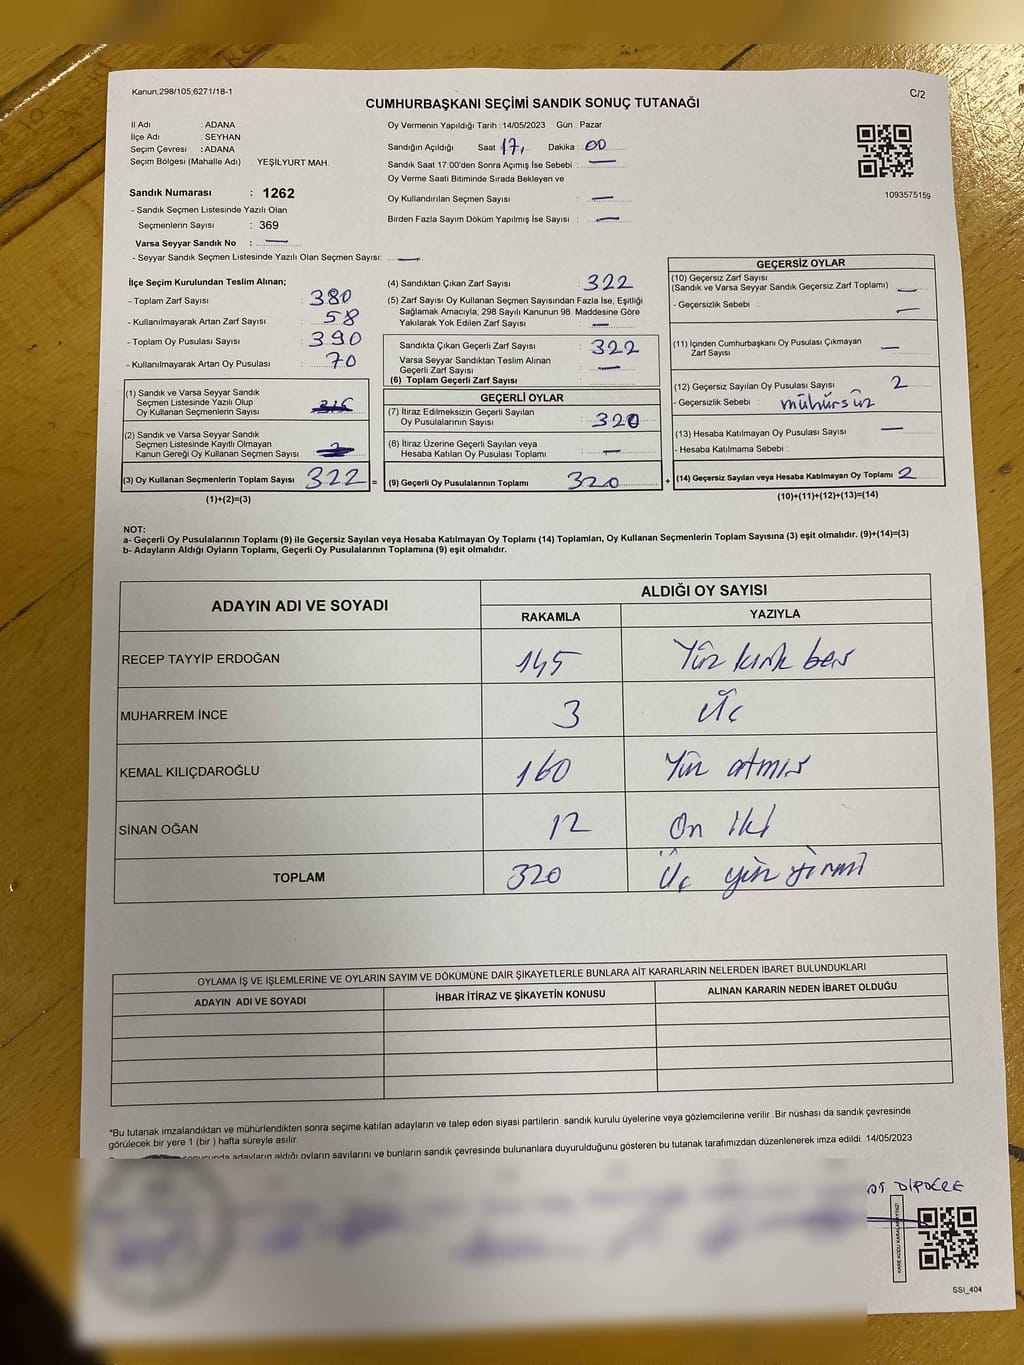 Kanun,298/105,6271/18-1
C/2
CUMHURBAŞKANI SEÇİMİ SANDIK SONUÇ TUTANAĞI
İl Adı : ADANA
İlçe Adı : SEYHAN
Seçim Çevresi : ADANA
Seçim Bölgesi (Mahalle Adı) : YEŞİLYURT MAH.
Sandık Numarası : 1262
- Sandık Seçmen Listesinde Yazılı Olan
Seçmenlerin Sayısı : 369
Varsa Seyyar Sandık No : —
- Seyyar Sandık Seçmen Listesinde Yazılı Olan Seçmen Sayısı: —
Oy Vermenin Yapıldığı Tarih : 14/05/2023 Gün : Pazar
Sandığın Açıldığı Saat 17, Dakika : 00
Sandık Saat 17:00'den Sonra Açımış İse Sebebi : —
Oy Verme Saati Bitiminde Sırada Bekleyen ve
Oy Kullandırılan Seçmen Sayısı : —
Birden Fazla Sayım Döküm Yapılmış İse Sayısı : —
1093575159
İlçe Seçim Kurulundan Teslim Alınan;
- Toplam Zarf Sayısı : 380
- Kullanılmayarak Artan Zarf Sayısı : 58
- Toplam Oy Pusulası Sayısı : 390
- Kullanılmayarak Artan Oy Pusulası : 70
(1) Sandık ve Varsa Seyyar Sandık
Seçmen Listesinde Yazılı Olup
Oy Kullanan Seçmenlerin Sayısı :
(2) Sandık ve Varsa Seyyar Sandık
Seçmen Listesinde Kayıtlı Olmayan
Kanun Gereği Oy Kullanan Seçmen Sayısı :
(3) Oy Kullanan Seçmenlerin Toplam Sayısı : 322 =
(1)+(2)=(3)
(4) Sandıktan Çıkan Zarf Sayısı : 322
(5) Zarf Sayısı Oy Kullanan Seçmen Sayısından Fazla İse, Eşitliği
Sağlamak Amacıyla, 298 Sayılı Kanunun 98. Maddesine Göre
Yakılarak Yok Edilen Zarf Sayısı : —
Sandıkta Çıkan Geçerli Zarf Sayısı : 322
Varsa Seyyar Sandıktan Teslim Alınan
Geçerli Zarf Sayısı : —
(6) Toplam Geçerli Zarf Sayısı :
GEÇERLİ OYLAR
(7) İtiraz Edilmeksizin Geçerli Sayılan
Oy Pusulalarının Sayısı : 320
(8) İtiraz Üzerine Geçerli Sayılan veya
Hesaba Katılan Oy Pusulası Toplamı : —
(9) Geçerli Oy Pusulalarının Toplamı 320 +
GEÇERSİZ OYLAR
(10) Geçersiz Zarf Sayısı
(Sandık ve Varsa Seyyar Sandık Geçersiz Zarf Toplamı) : —
- Geçersizlik Sebebi : —
(11) İçinden Cumhurbaşkanı Oy Pusulası Çıkmayan
Zarf Sayısı : —
(12) Geçersiz Sayılan Oy Pusulası Sayısı : 2
- Geçersizlik Sebebi : mühürsüz
(13) Hesaba Katılmayan Oy Pusulası Sayısı : —
- Hesaba Katılmama Sebebi :
(14) Geçersiz Sayılan veya Hesaba Katılmayan Oy Toplamı 2
(10)+(11)+(12)+(13)=(14)
NOT:
a- Geçerli Oy Pusulalarının Toplamı (9) ile Geçersiz Sayılan veya Hesaba Katılmayan Oy Toplamı (14) Toplamları, Oy Kullanan Seçmenlerin Toplam Sayısına (3) eşit olmalıdır. (9)+(14)=(3)
b- Adayların Aldığı Oyların Toplamı, Geçerli Oy Pusulalarının Toplamına (9) eşit olmalıdır.
ADAYIN ADI VE SOYADI
ALDIĞI OY SAYISI
RAKAMLA YAZIYLA
RECEP TAYYİP ERDOĞAN 145 Yüz kırk beş
MUHARREM İNCE 3 Üç
KEMAL KILIÇDAROĞLU 160 Yüz atmış
SİNAN OĞAN 12 On iki
TOPLAM 320 Üç yüz yirmi
OYLAMA İŞ VE İŞLEMLERİNE VE OYLARIN SAYIM VE DÖKÜMÜNE DAİR ŞİKAYETLERLE BUNLARA AİT KARARLARIN NELERDEN İBARET BULUNDUKLARI
ADAYIN ADI VE SOYADI İHBAR İTİRAZ VE ŞİKAYETİN KONUSU ALINAN KARARIN NEDEN İBARET OLDUĞU
*Bu tutanak imzalandıktan ve mühürlendikten sonra seçime katılan adayların ve talep eden siyasi partilerin sandık kurulu üyelerine veya gözlemcilerine verilir. Bir nüshası da sandık çevresinde
görülecek bir yere 1 (bir ) hafta süreyle asılır.
sonucunda adayların aldığı oyların sayılarını ve bunların sandık çevresinde bulunanlara duyurulduğunu gösteren bu tutanak tarafımızdan düzenlenerek imza edildi. 14/05/2023
SSI_404